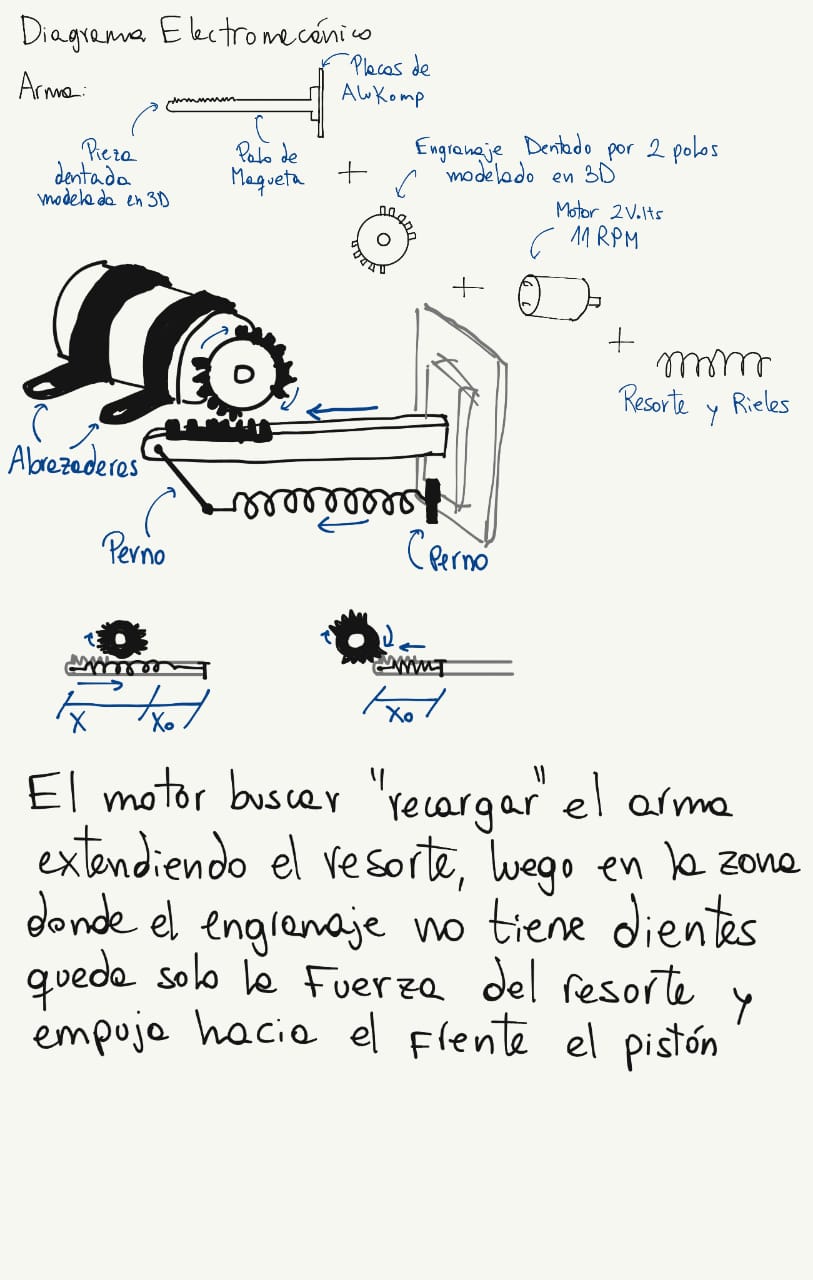 Diagrama Electromecánico
Arma:
Placas de
AluKomp
Pieza
dentada
modelada en 3D
Palo de
Maqueta
+
Engranaje Dentado por 2 polos
modelado en 3D
+
Motor 2Volts
11 RPM
+
Resorte y Rieles
Abrazaderas
Perno
Perno
X
Xo
Xo
El motor buscar "recargar" el arma
extendiendo el resorte, luego en la zona
donde el engranaje no tiene dientes
queda solo la Fuerza del resorte y
empuja hacia el Frente el pistón